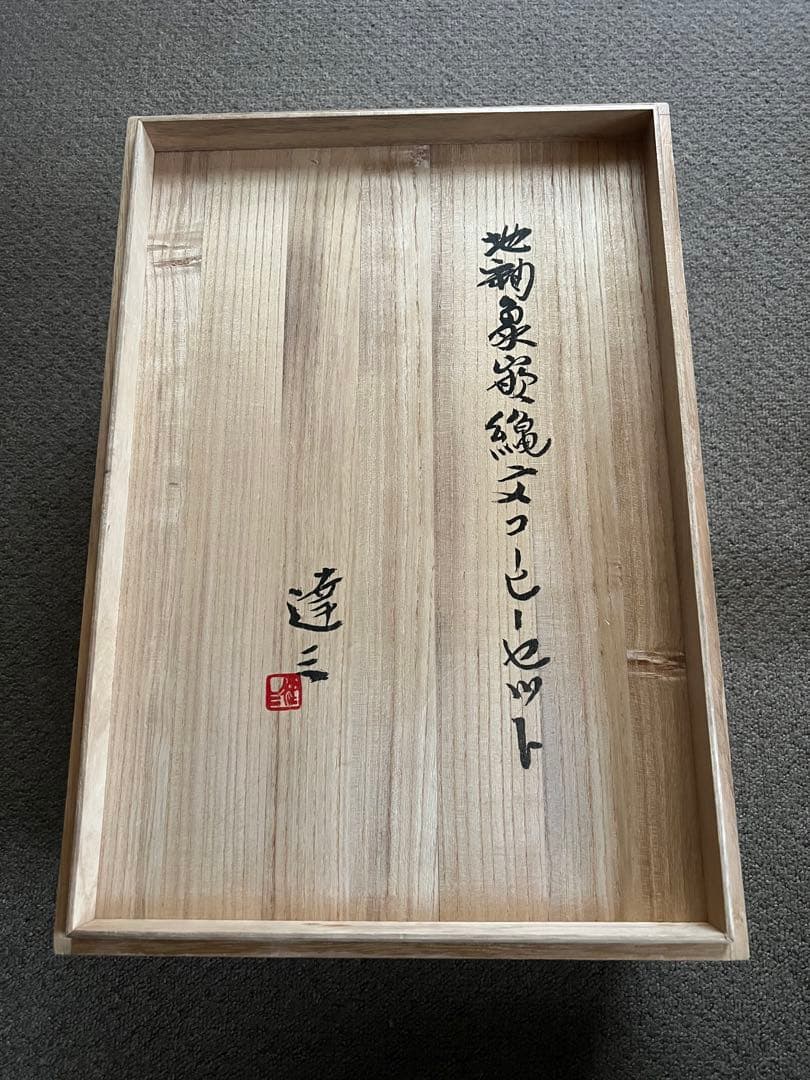 地釉象嵌縄文コーヒーセット
達三
達三